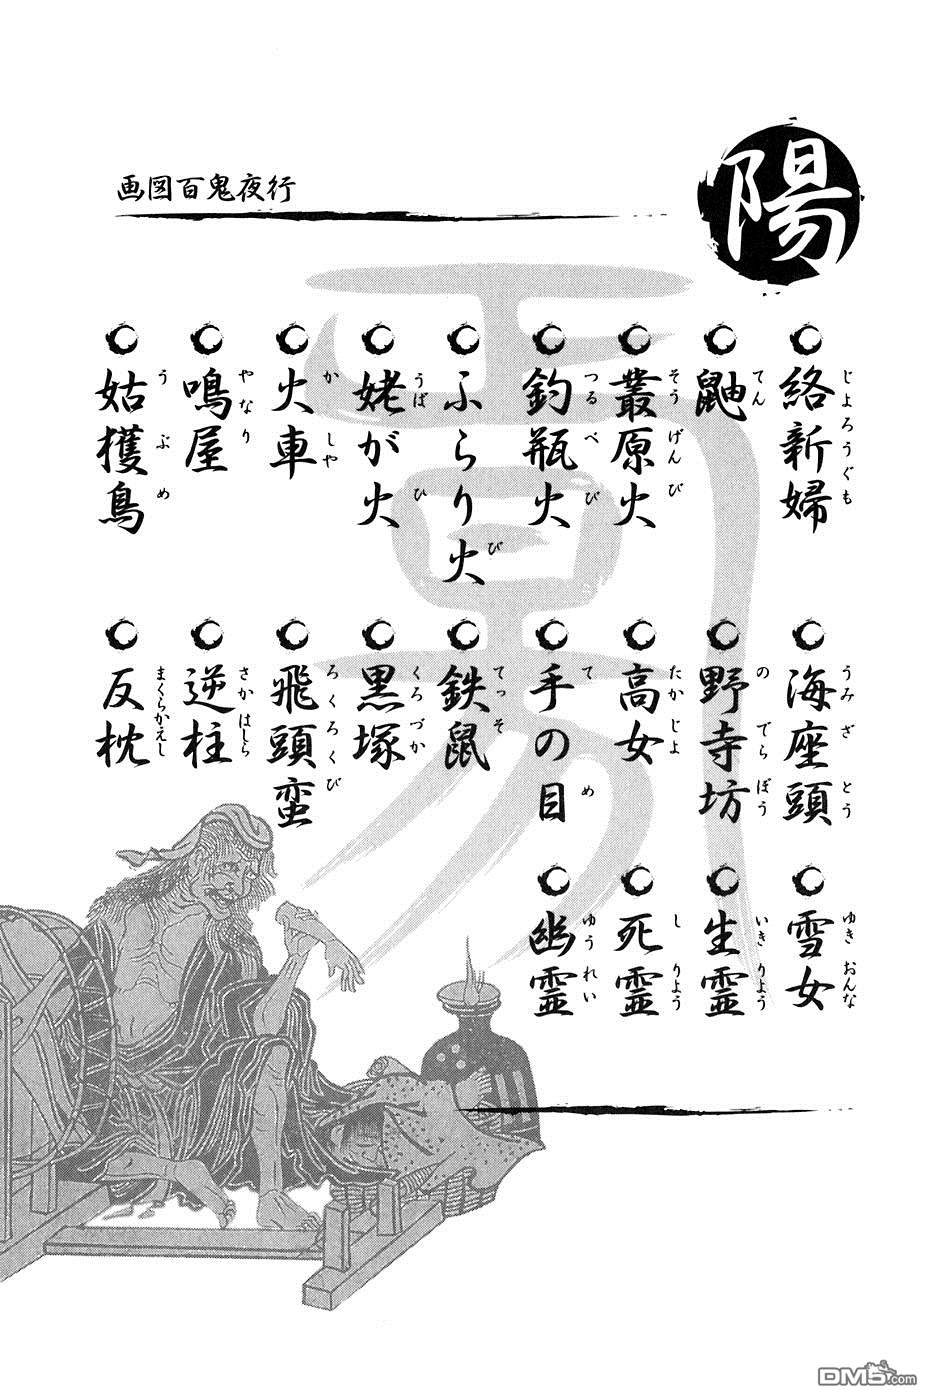 陽
画図百鬼夜行
絡新婦
じょろうぐも
鼬
てん
叢原火
そうげんび
釣瓶火
つるべび
ふらり火
び
姥が火
うばひ
火車
かしや
鳴屋
やなり
姑獲鳥
うぶめ
海座頭
うみざとう
野寺坊
のでらぼう
高女
たかじよ
手の目
てめ
鉄鼠
てっそ
黒塚
くろづか
飛頭蛮
ろくろくび
逆柱
さかばしら
反枕
まくらかえし
雪女
ゆきおんな
生霊
いきりよう
死霊
しりよう
幽霊
ゆうれい
DM5.com